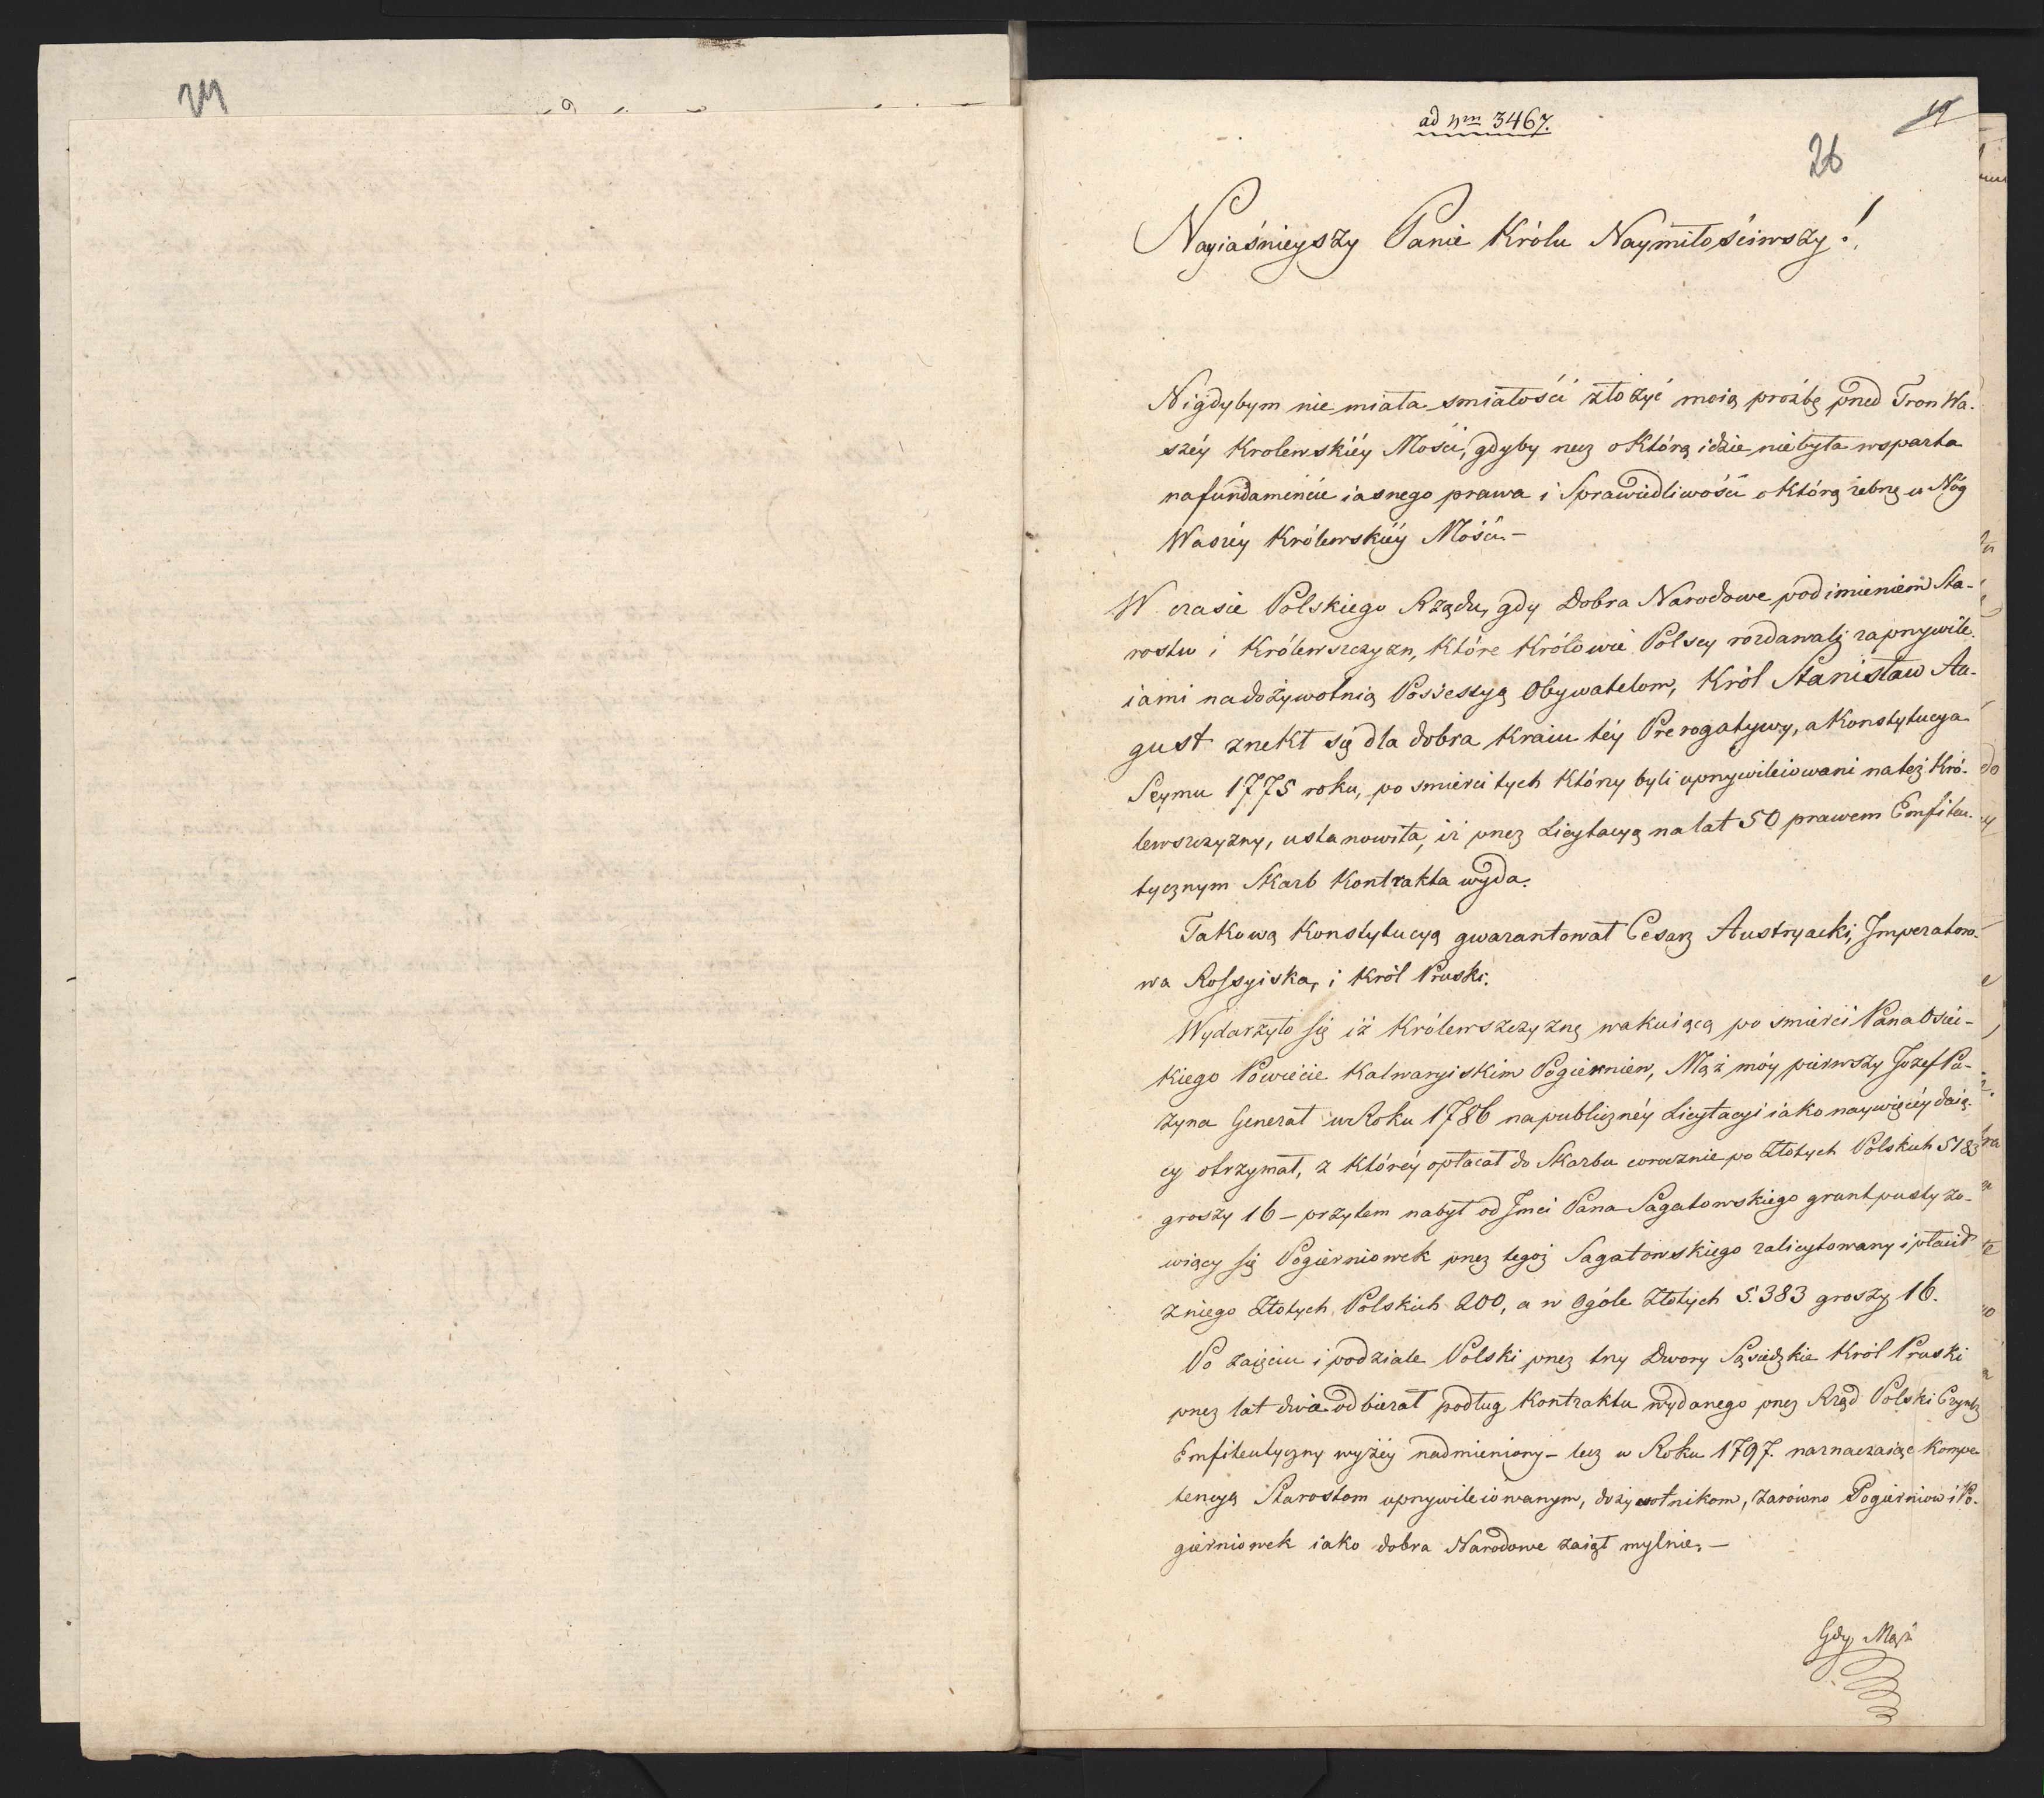 ad Nrm 3467.
19
26
Nayiaśnieyszy Panie Królu Naymiłościwszy!
Nigdybym nie miała smiałości złożyć moią prożbę przed Tron Wa-
széy Krolewskiéy Mości, gdyby rzecz o którą idzie niebyła wsparta
na fundamencie iasnego prawa i Sprawiedliwości o którą żebrzę u Nóg
Waszéy Królewskiéy Mości.-
W czasie Polskiego Rządu, gdy Dobra Narodowe pod imieniem Sta-
rostw i Królewszczyzn, które Królowie Polscy rozdawali za przywile-
iami na dożywotnią Possessyą Obywatelom, Król Stanisław Au-
gust zrzekł się dla dobra kraiu téy Prerogatywy, a Konstytucya
Seymu 1775 roku, po smierci tych którzy byli uprzywileiowani na też Kró-
lewszczyzny, ustanowiła, iż przez Licytacyą na lat 50 prawem Emfiteu-
tycznym Skarb Kontrakta wyda.
Takową Konstytucyą gwarantował Cesarz Austryacki, Imperatoro-
wa Rossyiska, i Król Pruski.
Wydarzyło się iż Królewszczyznę wakuiącą po smierci Pana Osie-
kiego Powiecie Kalwaryiskim Pogierniew, Mąż móy pierwszy Jozef Pu-
zyna Generał w Roku 1786 na publicznéy Licytacyi iako naywięcéy daią-
cy otrzymał, z któréy opłacał do Skarbu corocznie po Złotych Polskich 5183
groszy 16 - przytem nabył od Jmci Pana Sagatowskiego grunt pusty zo-
wiący się Pogierniowek przez tegoż Sagatowskiego zalicytowany i płacił
z niego Złotych Polskich 200, a w Ogóle Złotych 5.383 groszy 16.
Po zaięciu i podziale Polski przez trzy Dwory Sąsiedzkie Król Pruski
przez lat dwie odbierał podług Kontraktu wydanego przez Rząd Polski Czynsz
Emfiteutyczny wyżéy nadmieniony - lecz w Roku 1797. naznaczaiąc kompe-
tencyą Starostom uprzywileiowanym, dożywotnikom, zarówno Pogierniow i Po-
gierniowek iako dobra Narodowe zaiął mylnie. -
Gdy Mąż